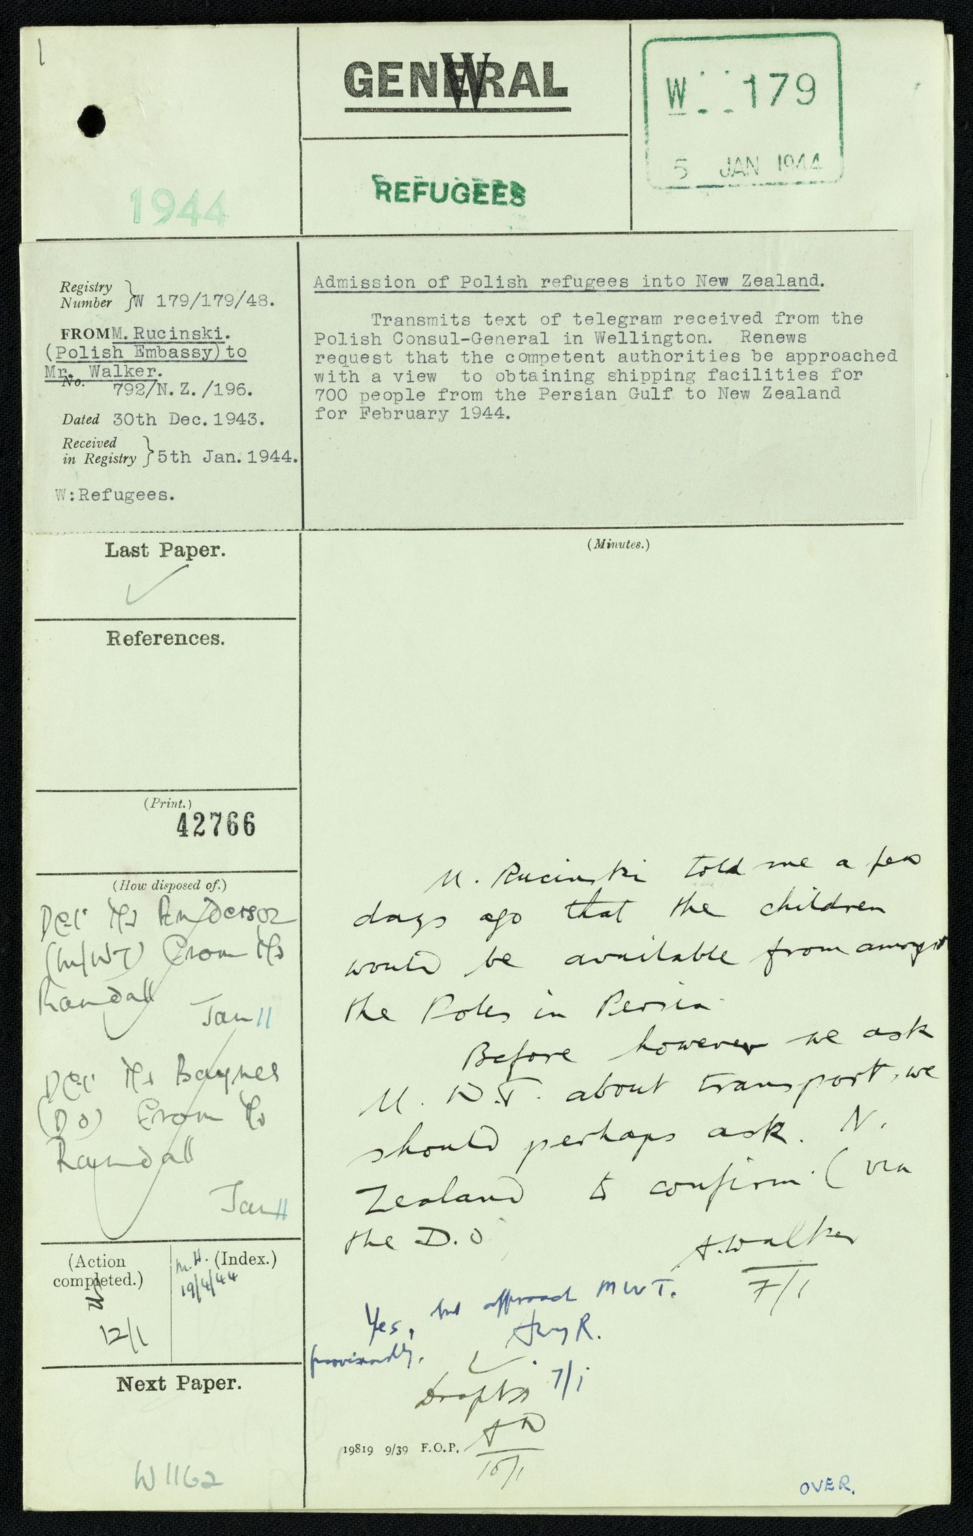 GENERAL
W
W 179
5 JAN 1944
1944
REFUGEES
Registry
Number } W 179/179/48.
FROM M. Rucinski.
(Polish Embassy) to
Mr. Walker.
No. 792/N.Z./196.
Dated 30th Dec. 1943.
Received
in Registry } 5th Jan. 1944.
W:Refugees.
Admission of Polish refugees into New Zealand.
Transmits text of telegram received from the
Polish Consul-General in Wellington. Renews
request that the competent authorities be approached
with a view to obtaining shipping facilities for
700 people from the Persian Gulf to New Zealand
for February 1944.
Last Paper.
(Minutes.)
References.
(Print.)
42766
(How disposed of.)
Dft Mr Anderson
(M/WT) from Mr
Randall
Jan 11
Dft Mr Baynes
(DO) from Mr
Randall
Jan 11
(Action
completed.)
12/1
(Index.)
M.H.
19/4/44
Next Paper.
W 1162
M. Rucinski told me a few
days ago that the children
would be available from amongst
the Poles in Persia.
Before however we ask
M. W.T. about transport, we
should perhaps ask N.
Zealand to confirm (via
the D.O.
A. Walker
7/1
Yes, but approach MWT.
provisionally.
R.
7/1
Drafts
10/1
19819 9/39 F.O.P.
OVER.